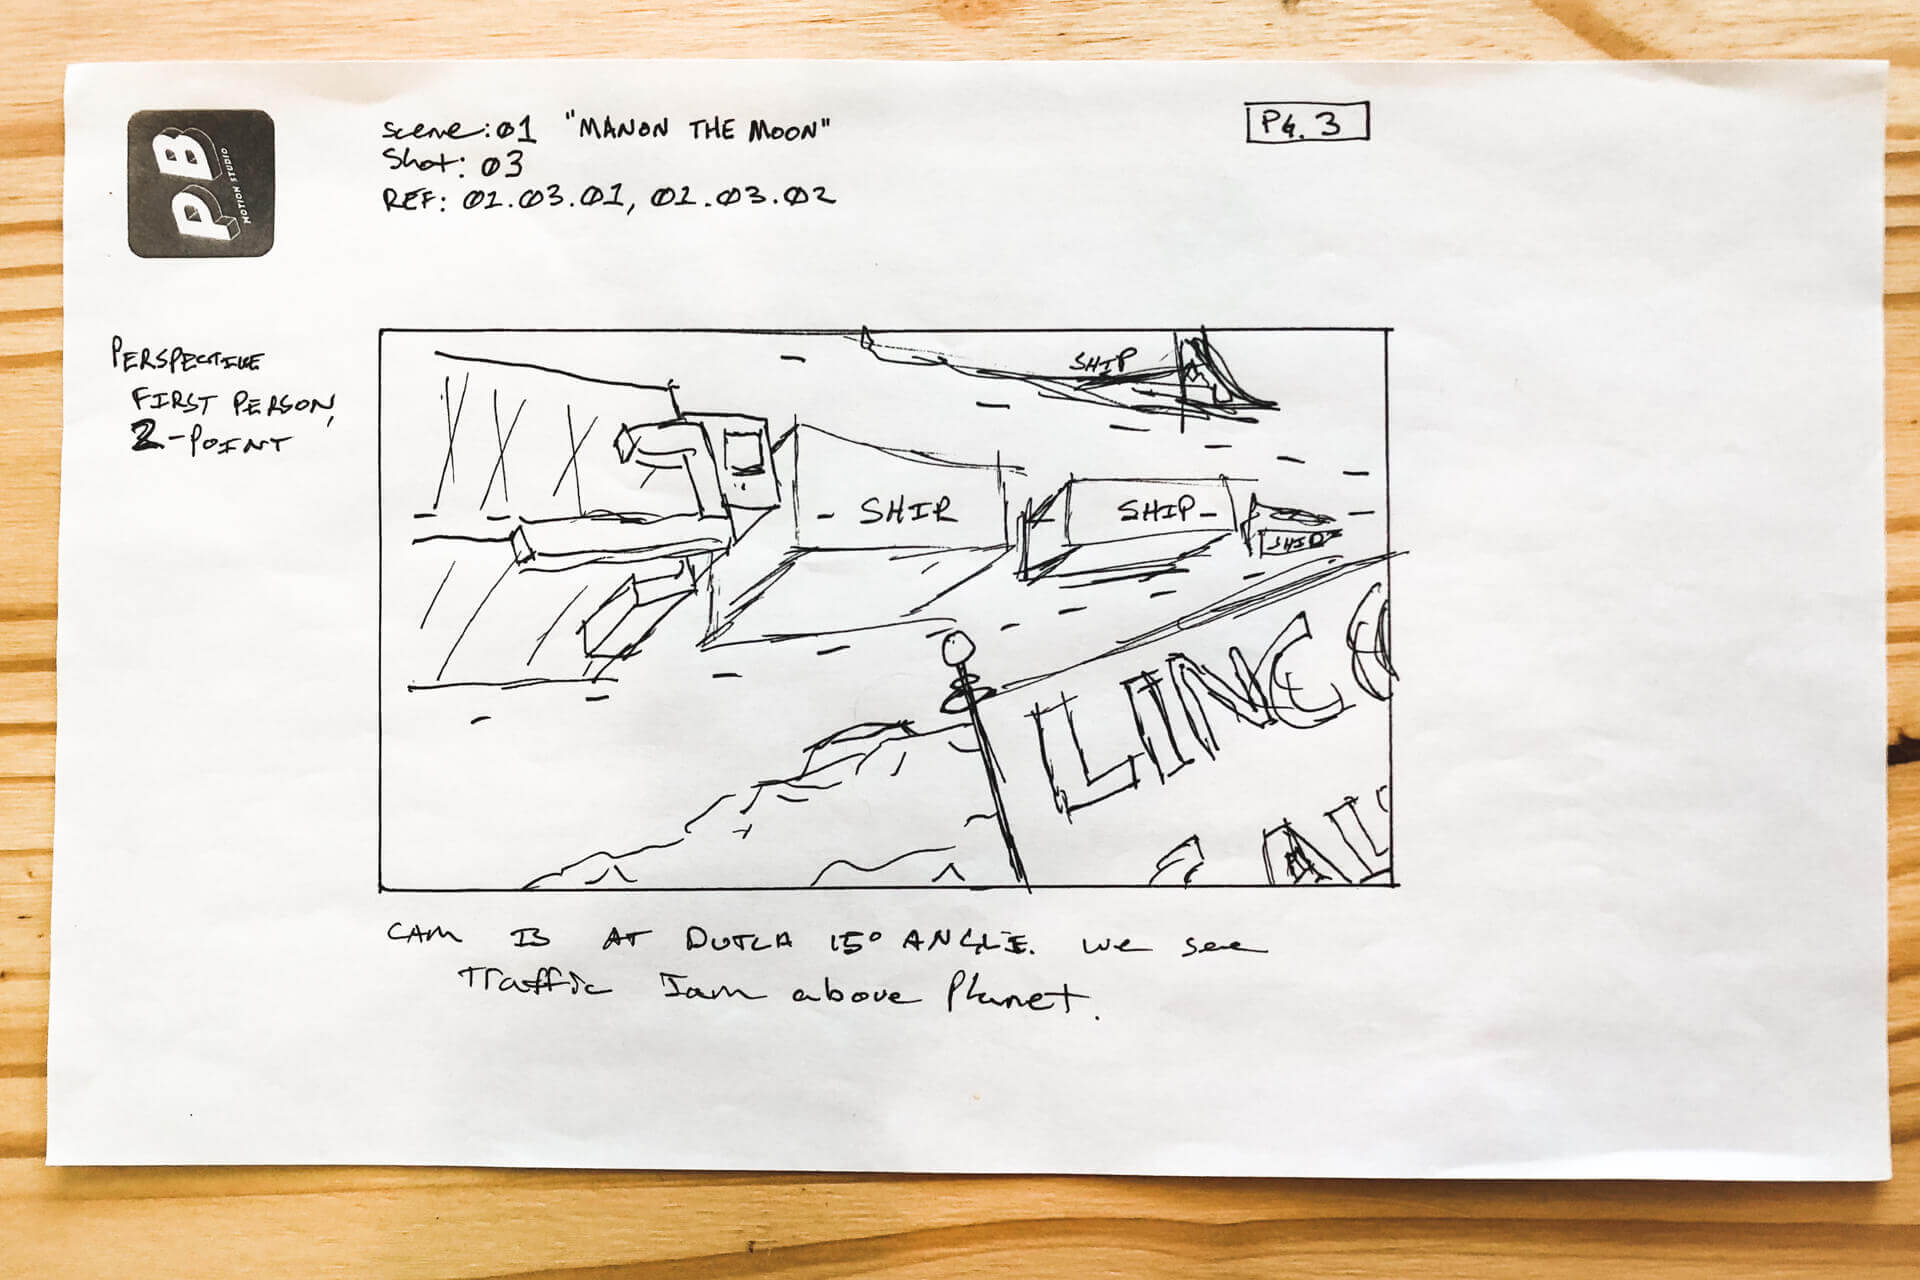 PB
MOTION STUDIO
scene: 01 "MANON THE MOON"
Shot: 03
REF: 01.03.01, 01.03.02
PG. 3
PERSPECTIVE
FIRST PERSON,
2-POINT
SHIP
SHIP
SHIP
SHIP
LINCO
AL
CAM IS AT DUTCH 15° ANGLE. we see
Traffic Jam above Planet.